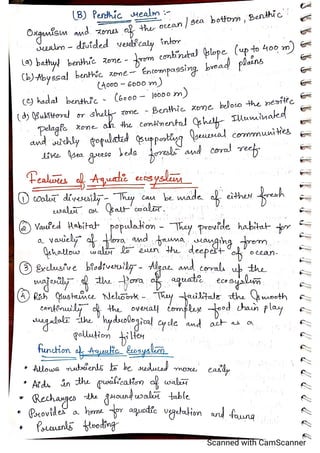 (B) Penthic realm :-
Organism and zones of the ocean / sea bottom, Benthic
realm - divided vertically into:
(a) bethyl benthic zone - from continetal slope (up to 400 m)
(b) Abyssal benthic zone - Encompassing broad plains
(4000 - 6000 m)
(c) hadal benthic - (6000 - 10000 m)
(d) Sublittoral or shelf zone - Benthic zone below the neritic
pelagic zone on the continental shelf. Illuminated
and richly populated supporting several communities
like sea grass beds forests and coral reef.
Features of Aquatic ecosystem
① Water diversity - They can be made of either fresh
water or salt water.
② Varied Habitat population - They provide habitat for
a variety of flora and fauna ranging from
shallow water to even the deepest of ocean.
③ Exclusive biodiversity - Algae and corals up the
majority of the flora of aquatic ecosystem
④ Rish Sustrence Network - They facilitate the smooth
continuity of the overall complex food chain play
regulate the hydrological cycle and act as a
pollution filter
Function of Aquatic Ecosystem
• Allows nutrients to be reduced more easily
• Aids in the purification of water
• Recharges the ground water table
• Provides a home for aquatic vegetation and fauna
• Prevents flooding
Scanned with CamScanner